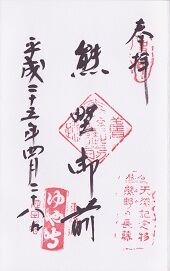 奉拝
熊野御前
平成二十五年四月二十八日
天然記念物
熊野の長藤
ゆや寺